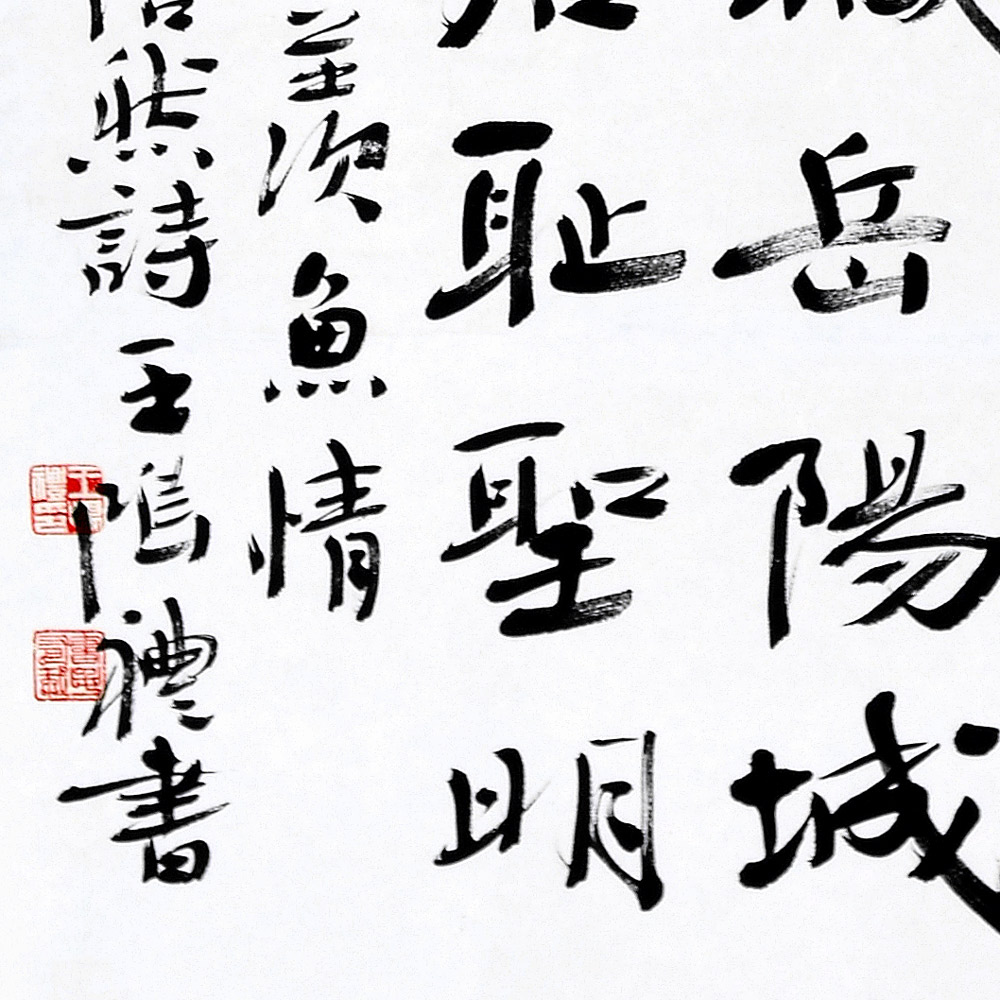 岳陽城
耻聖明
羨魚情
然詩王禮書